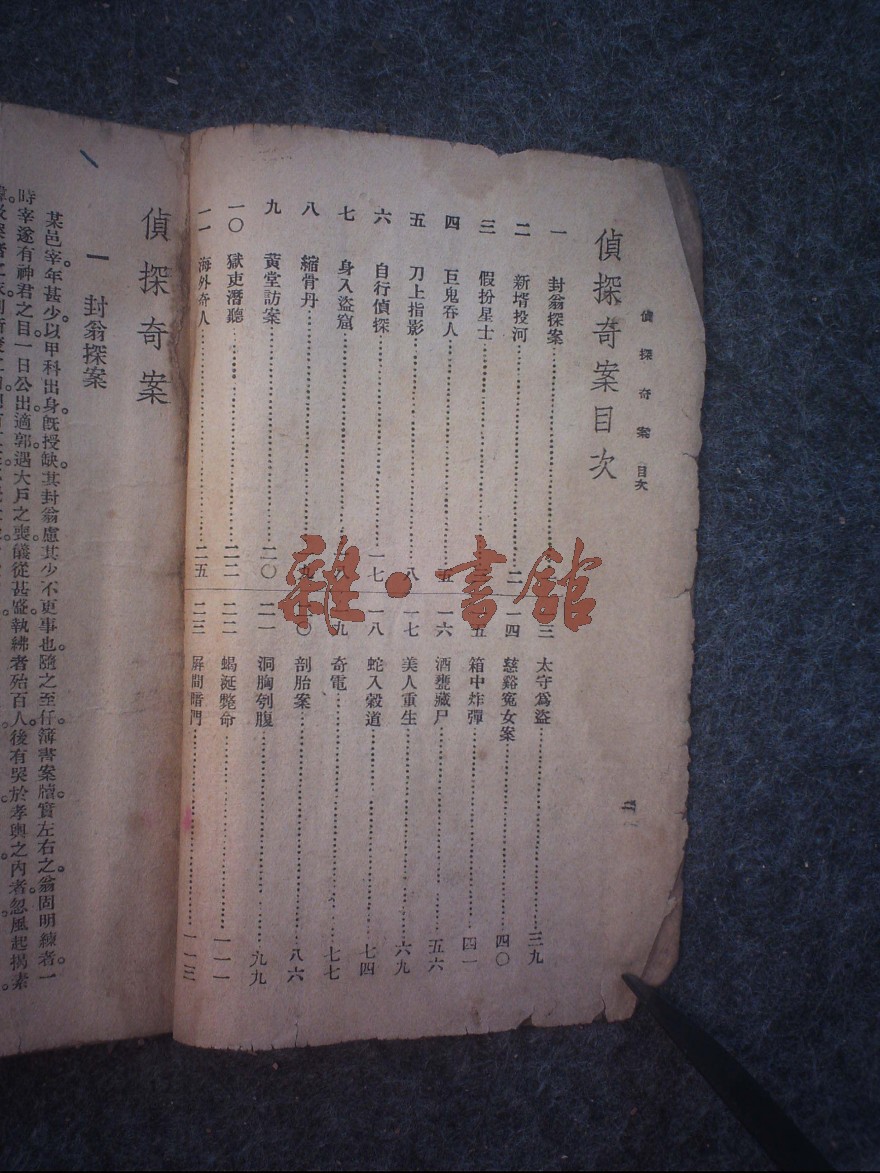 偵探奇案 目次
偵探奇案目次
一 封翁探案
二 新壻投河
三 假扮星士
四 巨鬼吞人
五 刀上指影 八
六 自行偵探 一七
七 身入盜窟
八 縮骨丹
九 黄堂訪案 二〇
一〇 獄吏潛聽 二二
一一 海外奇人 二五
三 太守爲盜 三九
四 慈谿寃女案 四〇
五 箱中炸彈 四一
一六 酒甕藏尸 五六
一七 美人重生 六九
一八 蛇入穀道 七四
九 奇電 七七
〇 剖胎案 八六
二一 洞胸刳腹 九九
二二 蝎涎斃命 一一一
二三 屏間暗門 一一三
雜·書館
偵探奇案
一 封翁探案
某邑宰年甚少。以甲科出身。旣授缺。其封翁慮其少不更事也。隨之至任。簿書案牘。實左右之。翁固明練者。一
時宰遂有神君之目。一日公出。適郭遇大戶之喪。儀從甚盛。執紼者殆百人。後有哭於孝輿之內者。忽風起揭素